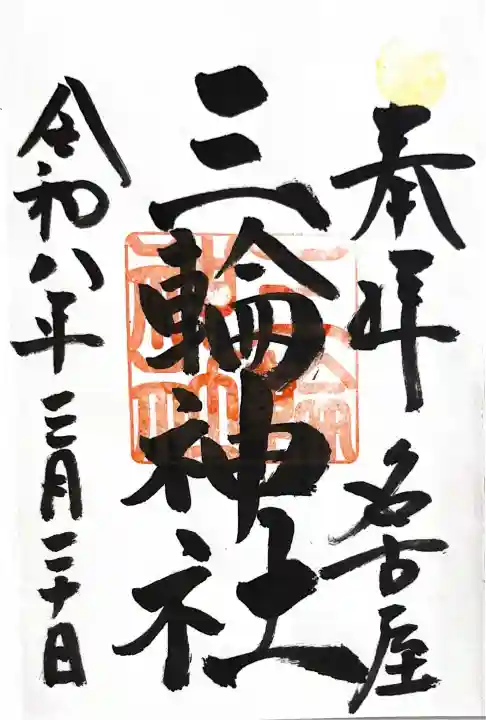 奉拝 名古屋
三輪神社
令和八年三月二十日